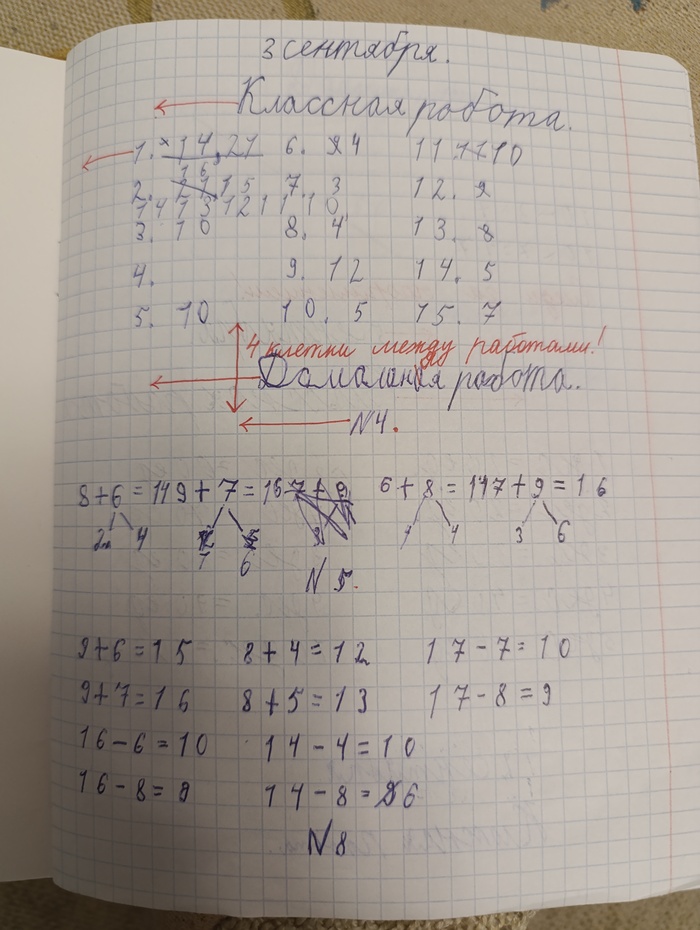 3 сентября.
Классная робота.
1. 14,21 6. 24 11.1110
16
2. 21 15 7. 3 12. 2
14 13 12 1 1 1 0
3. 10 8. 4 13. 8
4. 9. 12 14. 5
5. 10 10. 5 15. 7
4 клетки между работами!
Домашняя работа.
N4.
8+6=14 9+7=16 7+9 6+8=14 7+9=16
2 4 1 6 1 4 3 6
N 5.
9+6=15 8+4=12 17-7=10
9+7=16 8+5=13 17-8=9
16-6=10 14-4=10
16-8=9 14-8=6
N8